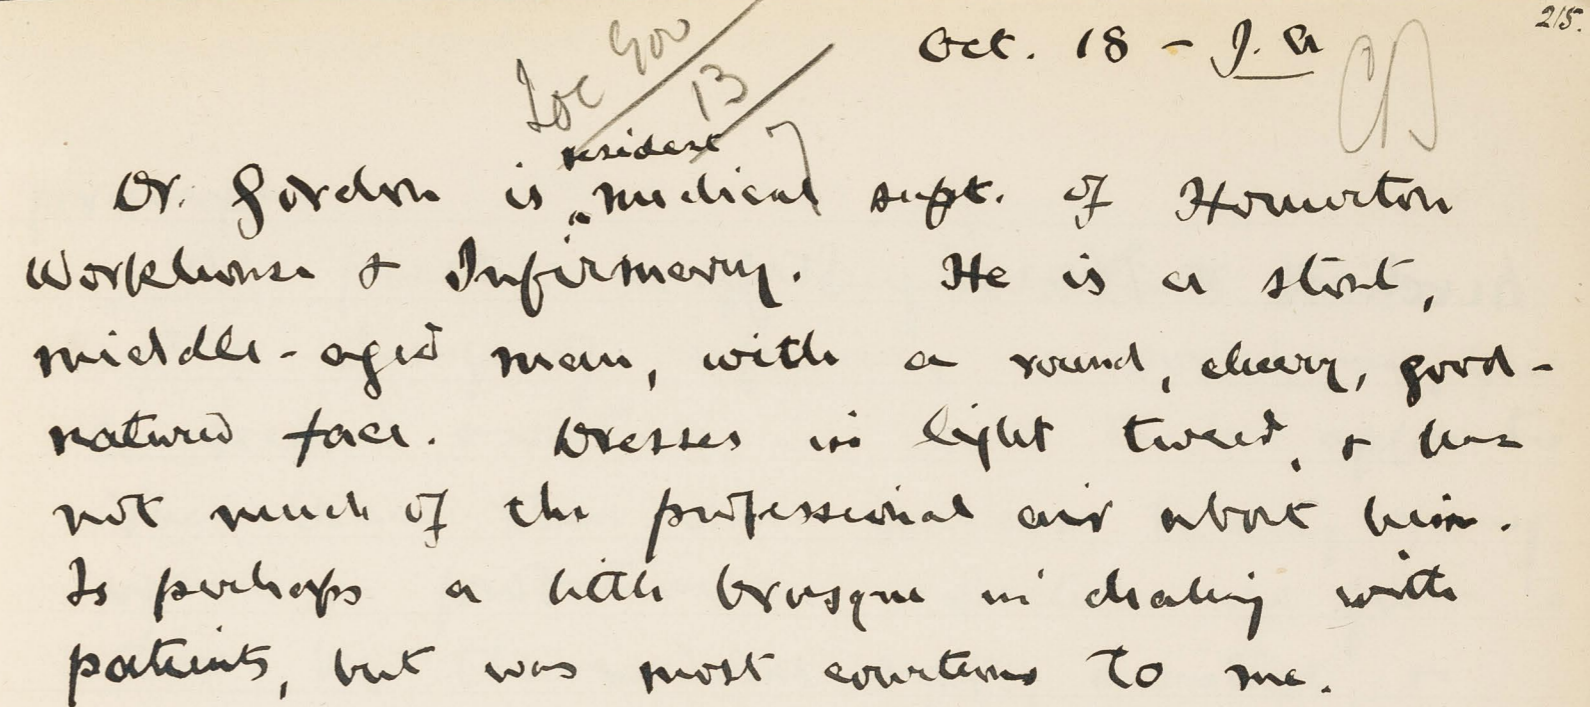 215.
Oct. 18 - J. A
Loc Gov
13
CD
resident
Dr. Gordon is medical supt. of Homerton
Workhouse & Infirmary. He is a stout,
middle-aged man, with a round, cheery, good-
natured face. Dresses in light tweed, & has
not much of the professional air about him.
Is perhaps a little brusque in dealing with
patients, but was most courteous to me.